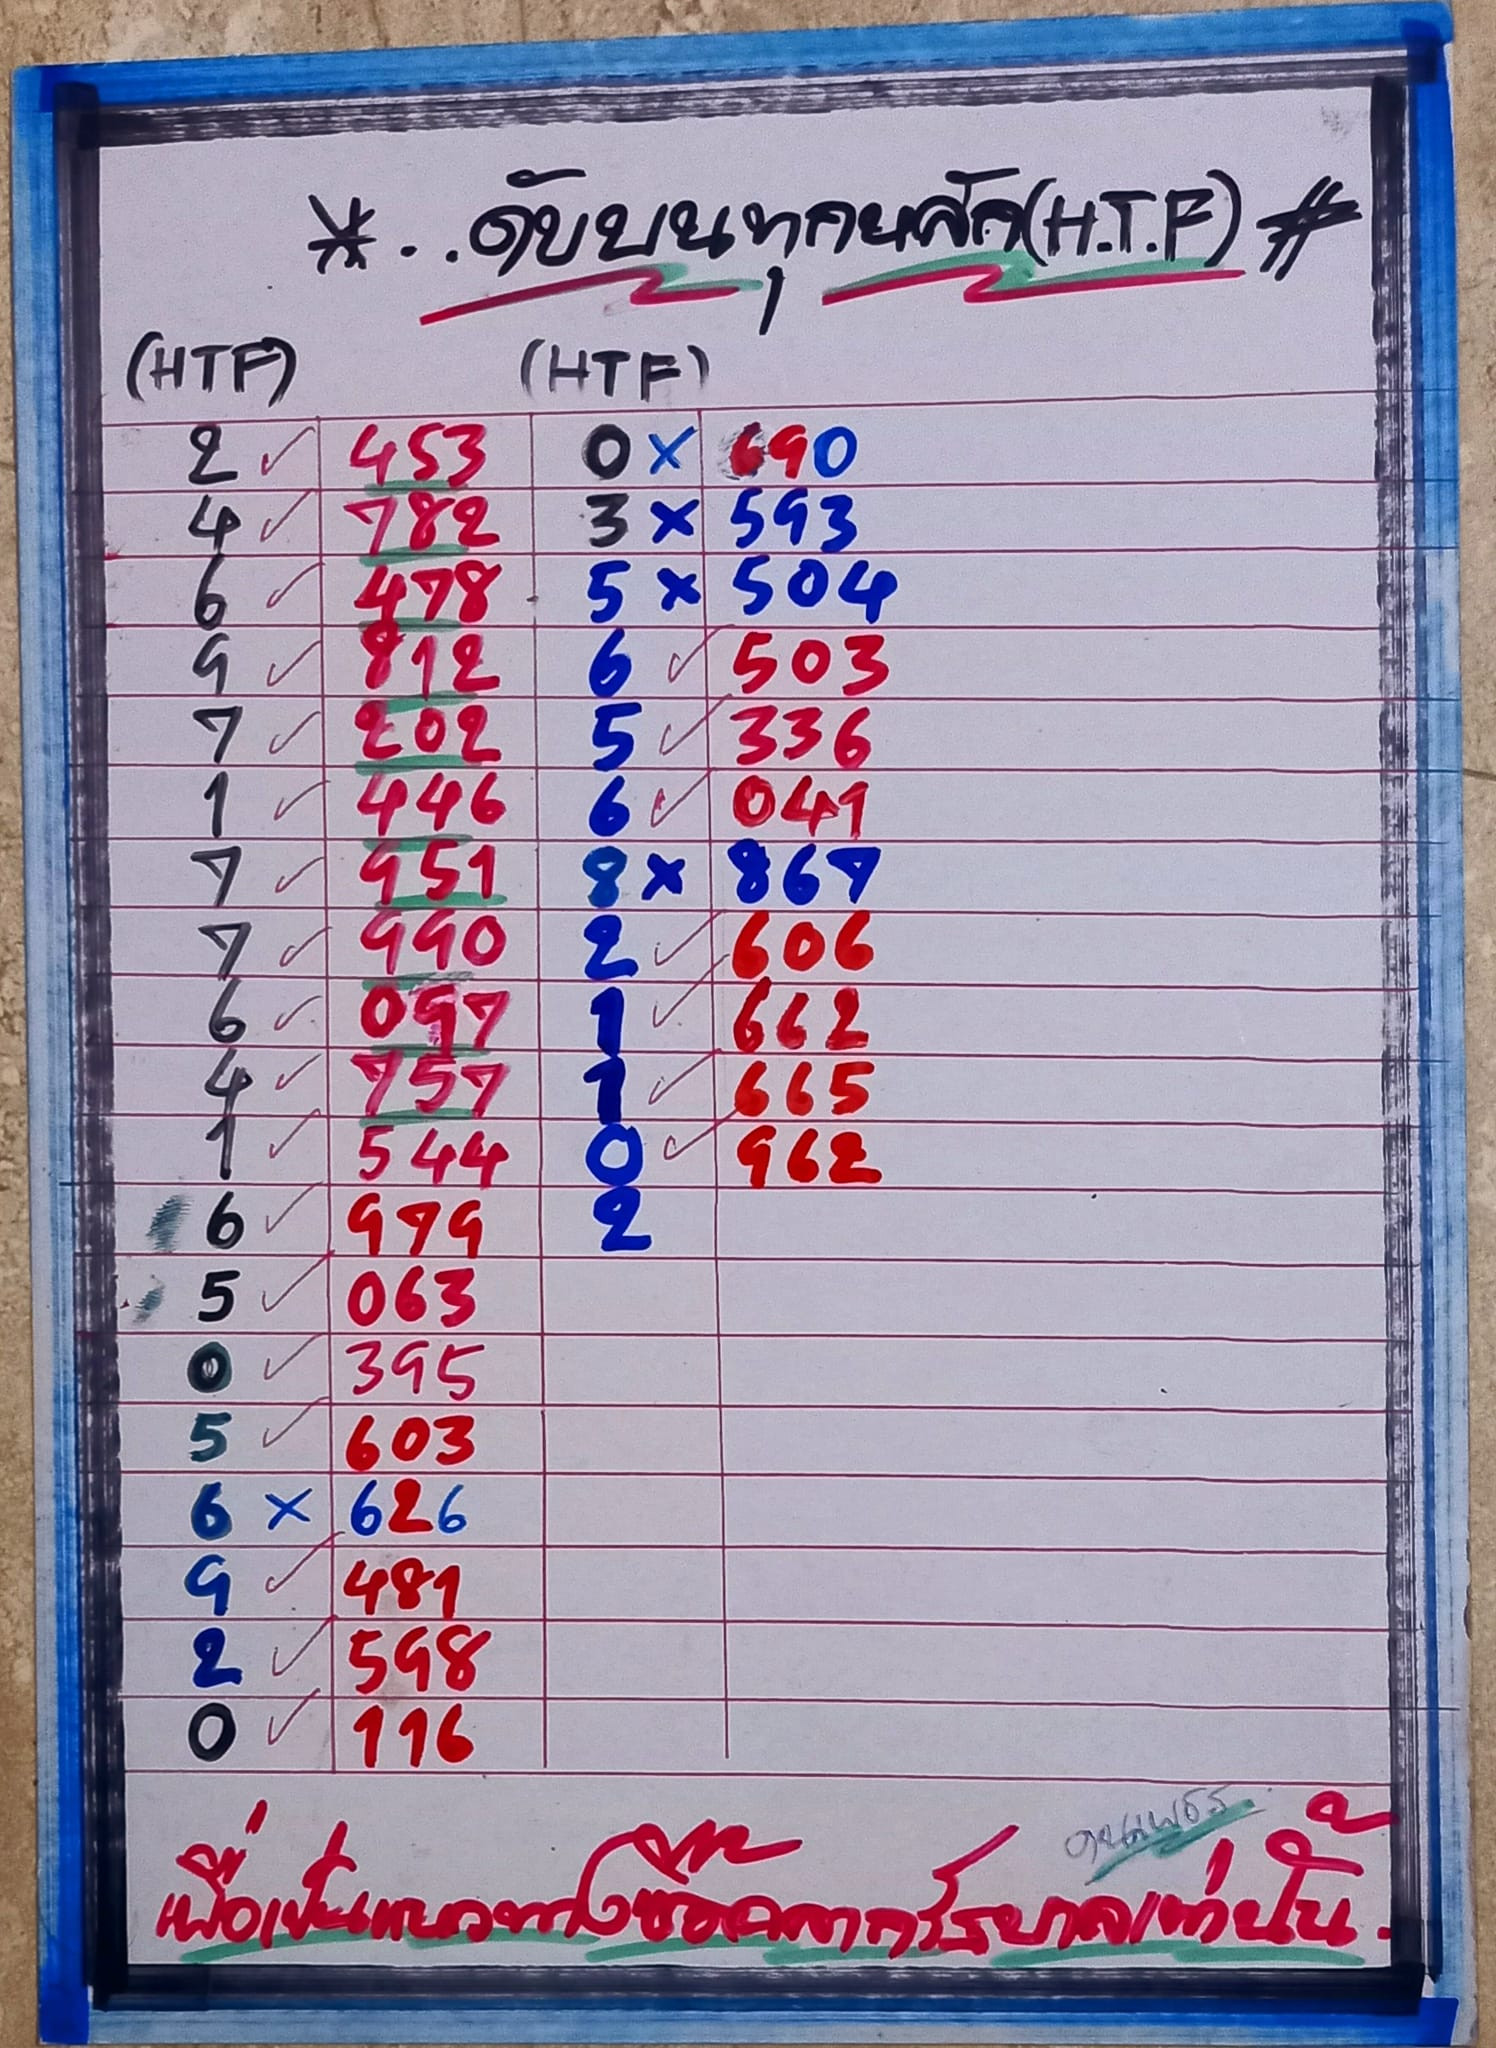 *..ดับบนทุกหลัก(H.T.F) #
(HTF) (HTF)
2 ✓ 453 0 × 690
4 ✓ 782 3 × 593
6 ✓ 478 5 × 504
9 ✓ 812 6 ✓ 503
7 ✓ 202 5 ✓ 336
1 ✓ 446 6 ✓ 041
7 ✓ 951 8 × 867
7 ✓ 990 2 ✓ 606
6 ✓ 097 1 ✓ 662
4 ✓ 757 1 ✓ 665
1 ✓ 544 0 ✓ 962
6 ✓ 979 2
5 ✓ 063
0 ✓ 395
5 ✓ 603
6 × 626
9 ✓ 481
2 ✓ 598
0 ✓ 116
เพื่อเป็นแนวทางซื้อสลากฯรัฐบาลเท่านั้น.